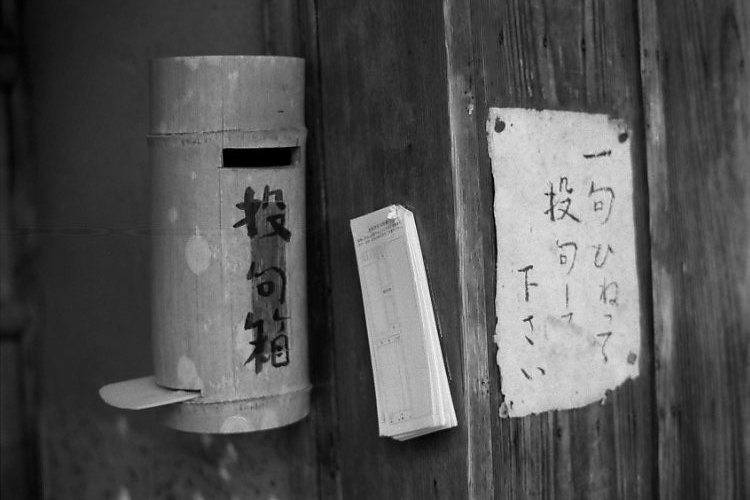 投句箱
一句ひねって
投句して
下さい